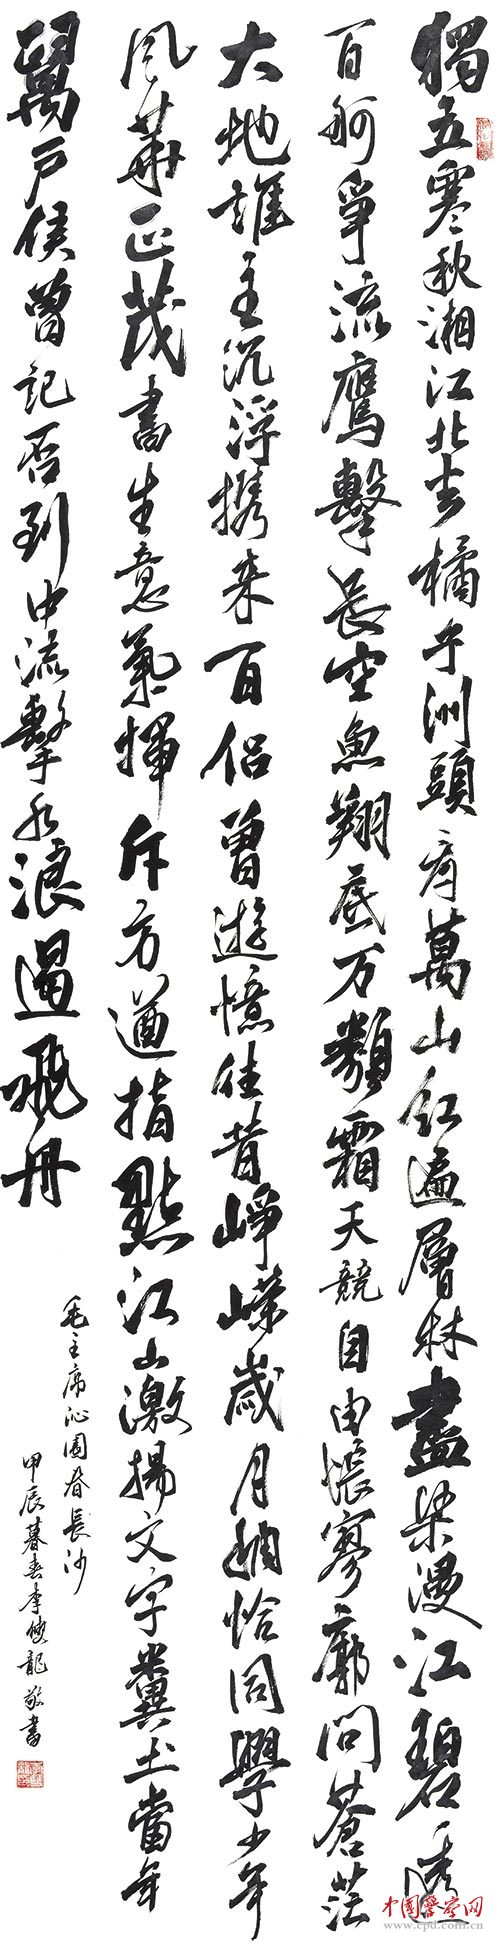 獨立寒秋湘江北去橘子洲頭看萬山红遍層林盡染漫江碧透
百舸爭流鷹擊長空魚翔底万類霜天競自由悵寥廓問蒼茫
大地誰主沉浮携来百侣曾遊憶往昔崢嶸歲月稠恰同學少年
風華正茂書生意氣揮斥方遒指點江山激揚文字糞土當年
萬戶侯曾記否到中流擊水浪遏飛舟
毛主席沁園春長沙
甲辰暮春李龍敬書
中国警察网
www.cpd.com.cn